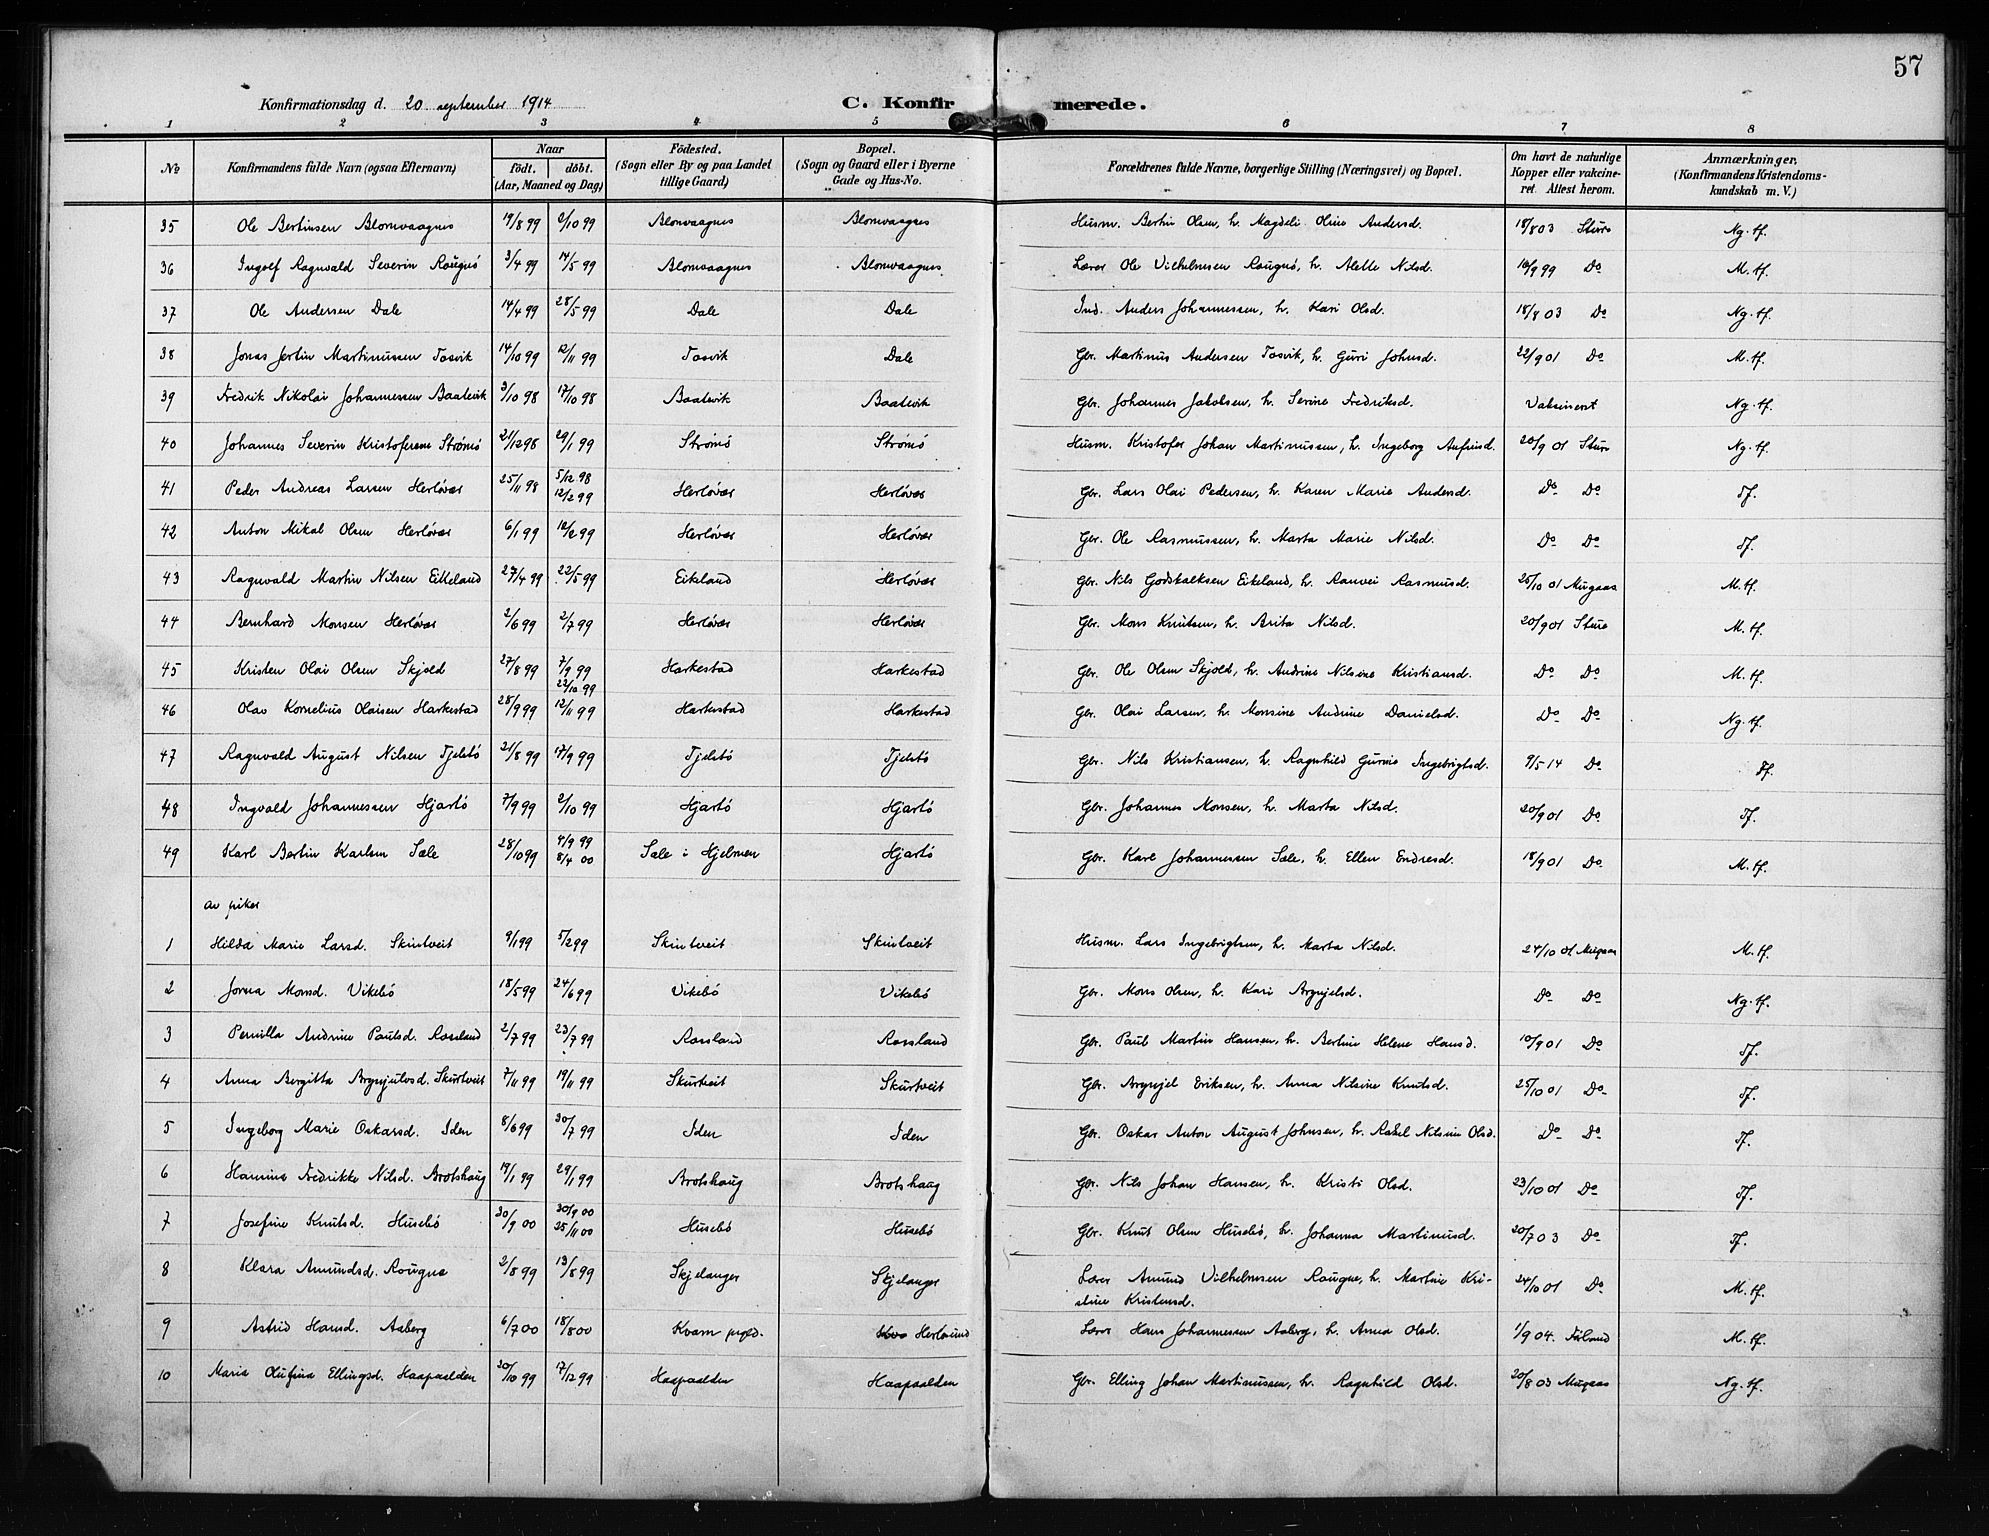 57
Konfirmationsdag d. 20 september 1914 C. Konfirmerede.
1 2 3 4 5 6 7 8
No Konfirmandens fulde Navn (ogsaa Efternavn) Naar födt. döbt. (Aar, Maaned og Dag) Födested. (Sogn eller By og paa Landet tillige Gaard) Bopæl. (Sogn og Gaard eller i Byerne Gade og Hus-No. Forældrenes fulde Navne, borgerlige Stilling (Næringsvei) og Bopæl. Om havt de naturlige Kopper eller vakcineret. Attest herom. Anmærkninger, (Konfirmandens Kristendomskundskab m. V.)
35 Ole Bertinsen Blomvaagnes 19/8 99 2/10 99 Blomvaagnes Blomvaagnes Husm. Bertin Olsen, h. Magdeli Oline Andersd. 18/8 03 Sture Ng. tf.
36 Ingolf Ragnvald Severin Rougnö 3/4 99 14/5 99 Blomvaagnes Blomvaagnes Lærer Ole Vilhelmsen Rougnö, h. Alette Nilsd. 18/9 99 Do M. tf.
37 Ole Andersen Dale 14/4 99 28/5 99 Dale Dale Ind. Anders Johannessen, h. Kari Olsd. 18/8 03 Do Ng. tf.
38 Jonas Jertin Martinussen Tosvik 14/10 99 12/11 99 Tosvik Dale Gbr. Martinus Andersen Tosvik, h. Guri Johnsd. 22/9 01 Do M. tf.
39 Fredrik Nikolai Johannessen Baatevik 3/10 98 17/10 98 Baatevik Baatevik Gbr. Johannes Jakobsen, h. Serine Fredriksd. Vaksinert Ng. tf.
40 Johannes Severin Kristofersen Strömö 21/12 98 29/1 99 Strömö Strömö Husm. Kristofer Johan Martinussen, h. Ingeborg Anfind. 20/9 01 Sture Ng. tf.
41 Peder Andreas Larsen Herlövær 25/11 98 5/12 98 12/2 99 Herlövær Herlövær Gbr. Lars Olai Pedersen, h. Karen Marie Andersd. Do Do Tf.
42 Anton Mikal Olsen Herlövær 6/1 99 12/2 99 Herlövær Herlövær Gbr. Ole Rasmussen, h. Marta Marie Nilsd. Do Do Tf.
43 Ragnvald Martin Nilsen Eikeland 27/4 99 22/5 99 Eikeland Herlövær Gbr. Nils Godskalksen Eikeland, h. Ranvei Rasmusd. 25/10 01 Mugaas M. tf.
44 Bernhard Monsen Herlövær 2/6 99 2/7 99 Herlövær Herlövær Gbr. Mons Knutsen, h. Brita Nilsd. 20/9 01 Sture M. tf.
45 Kristen Olai Olsen Skjold 27/8 99 7/9 99 22/10 99 Harkestad Harkestad Gbr. Ole Olsen Skjold, h. Andrine Nilsine Kristiansd. Do Do M. tf.
46 Olav Kornelius Olaisen Harkestad 28/9 99 12/11 99 Harkestad Harkestad Gbr. Olai Larsen, h. Monsine Andrine Danielsd. Do Do Ng. tf.
47 Ragnvald August Nilsen Tjelstö 21/8 99 17/9 99 Tjelstö Tjelstö Gbr. Nils Kristiansen, h. Ragnhild Gurine Ingebrigtsd. 9/5 14 Do Tf.
48 Ingvald Johannessen Hjartö 7/9 99 2/10 99 Hjartö Hjartö Gbr. Johannes Monsen, h. Marta Nilsd. 20/9 01 Do Tf.
49 Karl Bertin Karlsen Sæle 28/10 99 4/9 99 8/4 00 Sæle i Hjelmen Hjartö Gbr. Karl Johannessen Sæle, h. Ellen Endresd. 18/9 01 Do M. tf.
av piker
1 Hilda Marie Larsd. Skintveit 9/1 99 5/2 99 Skintveit Skintveit Husm. Lars Ingebrigtsen, h. Marta Nilsd. 24/10 01 Mugaas M. tf.
2 Jorna Monsd. Vikebö 18/5 99 24/6 99 Vikebö Vikebö Gbr. Mons Olsen, h. Kari Brynjelsd. Do Do Ng. tf.
3 Pernilla Andrine Paulsd. Rossland 2/7 99 23/7 99 Rossland Rossland Gbr. Paul Martin Hansen, h. Bertine Helene Hansd. 10/9 01 Do Tf.
4 Anna Birgitta Brynjulvsd. Skurtveit 7/11 99 19/11 99 Skurtveit Skurtveit Gbr. Brynjel Eriksen, h. Anna Nilsine Knutsd. 25/10 01 Do Tf.
5 Ingeborg Marie Oskarsd. Iden 8/6 99 30/7 99 Iden Iden Gbr. Oskar Anton August Johnsen, h. Rakel Nilsine Olsd. Do Do Tf.
6 Hansina Fredrikke Nilsd. Brotshaug 19/1 99 29/1 99 Brotshaug Brotshaug Gbr. Nils Johan Hansen, h. Kristi Olsd. 23/10 01 Do Tf.
7 Josefine Knutsd. Husebö 30/9 00 30/9 00 25/11 00 Husebö Husebö Gbr. Knut Olsen Husebö, h. Johanna Martinusd. 20/7 03 Do Tf.
8 Klara Amundsd. Rougnø 2/8 99 13/8 99 Skjelanger Skjelanger Lærer Amund Vilhelmsen Rougnø, h. Martine Kri-
stine Kristensd. 24/10 01 Do M. tf.
9 Astrid Hansd. Aaberg 6/7 00 18/8 00 Kvam prgld. Herlösund Lærer Hans Johannessen Aaberg, h. Anna Olsd. 1/9 04. M. tf.
10 Maria Olufina Ellingsd. Haapaalden 20/10 99 17/12 99 Haapaalden Haapaalden Gbr. Elling Johan Martinussen, h. Ragnhild Olsd. 20/8 03 Mugaas Ng. tf.